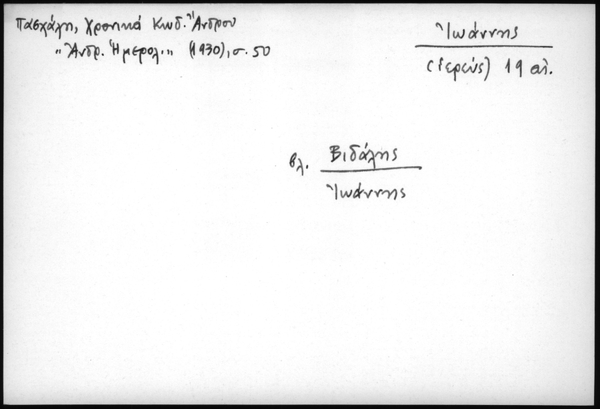 Πασχάλη, Χρονικά Κωδ. Ἄνδρου
"Ἀνδρ. Ἡμερολ." (1930), σ. 50
Ἰωάννης
(ἱερεύς) 19 αἰ.
βλ. Βιδάλης
Ἰωάννης